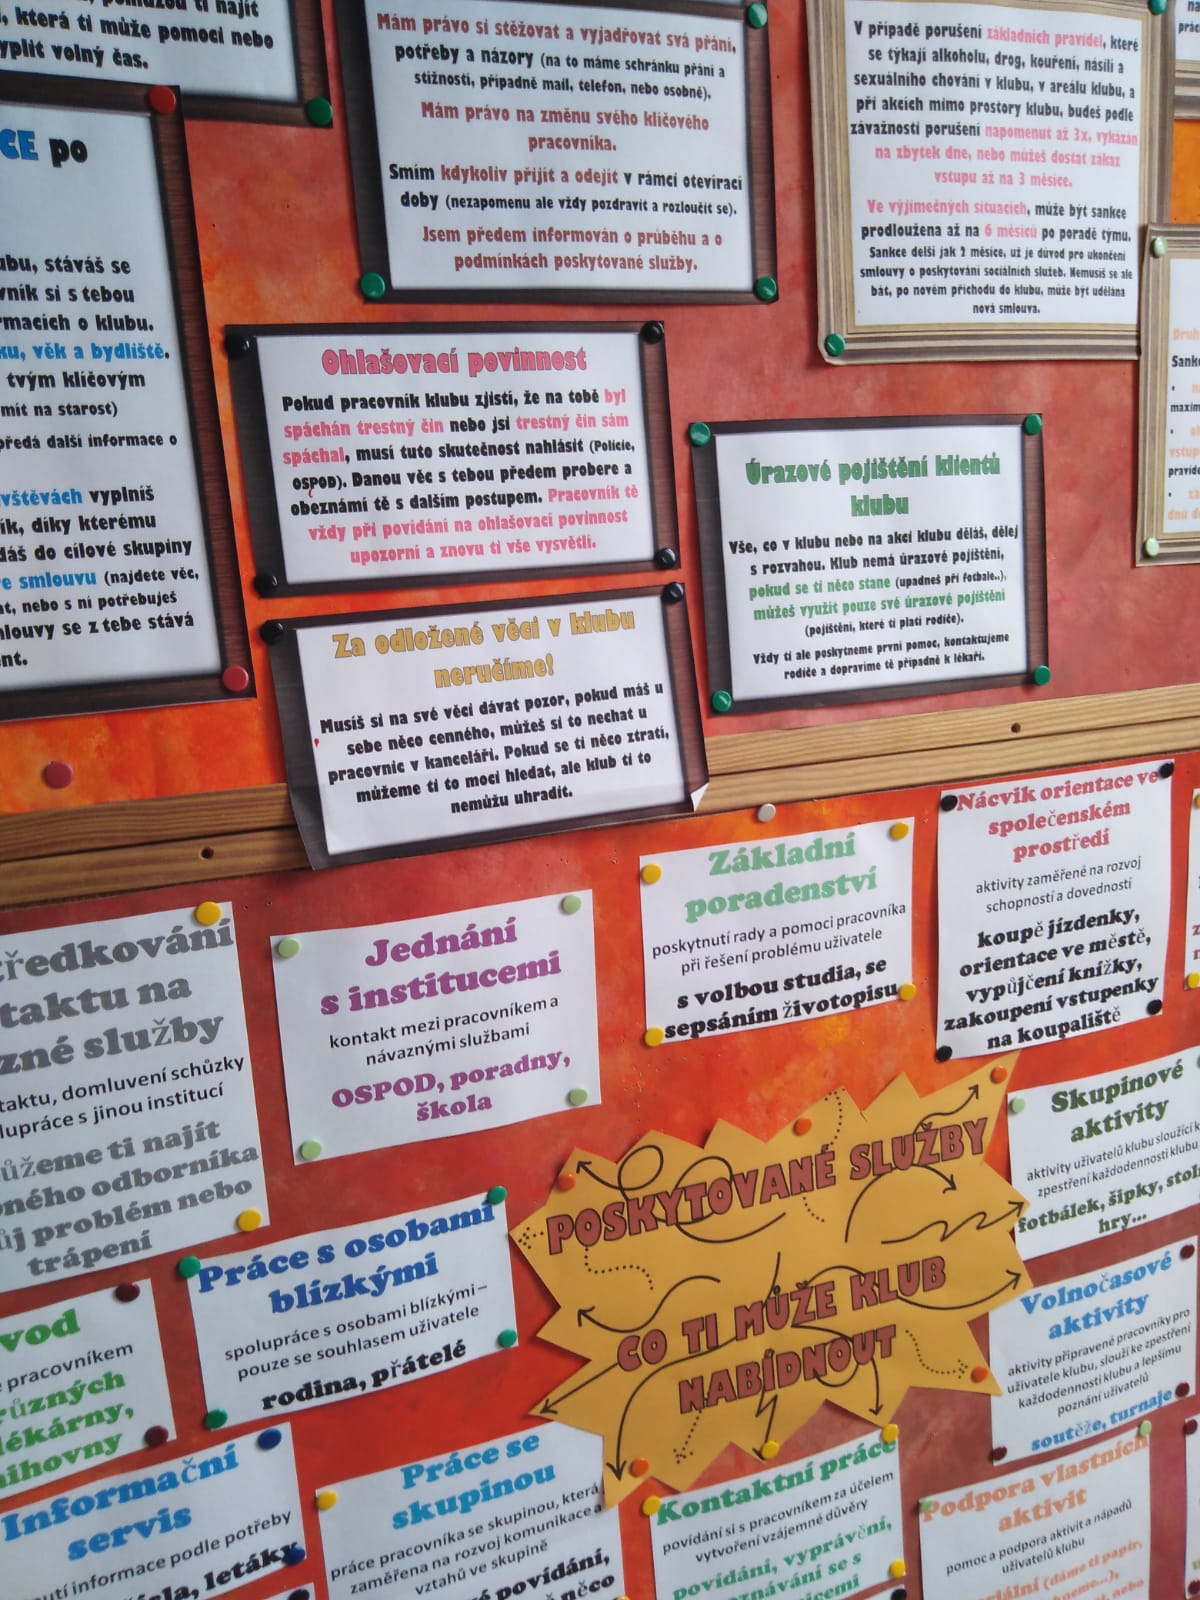 ti najít
která ti může pomoci nebo
volný čas.
Mám právo si stěžovat a vyjadřovat svá přání,
potřeby a názory (na to máme schránku přání a
stížností, případně mail, telefon, nebo osobně).
Mám právo na změnu svého klíčového
pracovníka.
Smím kdykoliv přijít a odejít v rámci otevírací
doby (nezapomenu ale vždy pozdravit a rozloučit se).
Jsem předem informován o průběhu a o
podmínkách poskytované služby.
V případě porušení základních pravidel, které
se týkají alkoholu, drog, kouření, násilí a
sexuálního chování v klubu, v areálu klubu, a
při akcích mimo prostory klubu, budeš podle
závažnosti porušení napomenut až 3x, vykázán
na zbytek dne, nebo můžeš dostat zákaz
vstupu až na 3 měsíce.
Ve výjimečných situacích, může být sankce
prodloužena až na 6 měsíců po poradě týmu.
Sankce delší jak 2 měsíce, už je důvod pro ukončení
smlouvy o poskytování sociálních služeb. Nemusíš se ale
bát, po novém příchodu do klubu, může být udělána
nová smlouva.
CE po
ubu, stáváš se
vník si s tebou
rmacích o klubu.
ku, věk a bydliště.
tvým klíčovým
mít na starost)
předá další informace o
vštěvách vyplníš
ík, díky kterému
dáš do cílové skupiny
e smlouvu (najdete věc,
at, nebo s ní potřebuješ
mlouvy se z tebe stává
ent.
Ohlašovací povinnost
Pokud pracovník klubu zjistí, že na tobě byl
spáchán trestný čin nebo jsi trestný čin sám
spáchal, musí tuto skutečnost nahlásit (Policie,
OSPOD). Danou věc s tebou předem probere a
obeznámí tě s dalším postupem. Pracovník tě
vždy při povídání na ohlašovací povinnost
upozorní a znovu ti vše vysvětlí.
Úrazové pojištění klientů
klubu
Vše, co v klubu nebo na akci klubu děláš, dělej
s rozvahou. Klub nemá úrazové pojištění,
pokud se ti něco stane (upadneš při fotbale..),
můžeš využít pouze své úrazové pojištění
(pojištění, které ti platí rodiče).
Vždy ti ale poskytneme první pomoc, kontaktujeme
rodiče a dopravíme tě případně k lékaři.
Sank
Za odložené věci v klubu
neručíme!
Musíš si na své věci dávat pozor, pokud máš u
sebe něco cenného, můžeš si to nechat u
pracovnic v kanceláři. Pokud se ti něco ztratí,
můžeme ti to moci hledat, ale klub ti to
nemůžu uhradit.
Nácvik orientace ve
společenském
prostředí
aktivity zaměřené na rozvoj
schopností a dovedností
koupě jízdenky,
orientace ve městě,
vypůjčení knížky,
zakoupení vstupenky
na koupaliště
Základní
poradenství
poskytnutí rady a pomoci pracovníka
při řešení problému uživatele
s volbou studia, se
sepsáním životopisu
Jednání
s institucemi
kontakt mezi pracovníkem a
návaznými službami
OSPOD, poradny,
škola
tředkování
taktu na
zné služby
taktu, domluvení schůzky
lupráce s jinou institucí
ůžeme ti najít
ného odborníka
ůj problém nebo
trápení
Skupinové
aktivity
aktivity uživatelů klubu sloužící k
zpestření každodennosti klubu
fotbálek, šipky, stoln
hry...
POSKYTOVANÉ SLUŽBY
CO TI MŮŽE KLUB
NABÍDNOUT
Práce s osobami
blízkými
spolupráce s osobami blízkými –
pouze se souhlasem uživatele
rodina, přátelé
Volnočasové
aktivity
aktivity připravené pracovníky pro
uživatele klubu, slouží ke zpestření
každodennosti klubu a lepšímu
poznání uživatelů
soutěže, turnaje
vod
pracovníkem
různých
lékárny,
nihovny
Informační
servis
nutí informace podle potřeby
letáky
Práce se
skupinou
práce pracovníka se skupinou, která
zaměřena na rozvoj komunikace a
vztahů ve skupině
povídání,
něco
Kontaktní práce
povídání si s pracovníkem za účelem
vytvoření vzájemné důvěry
povídání, vyprávění,
znávání se s
Podpora vlastních
aktivit
pomoc a podpora aktivit a nápadů
uživatelů klubu
(dáme ti papír,
nebo